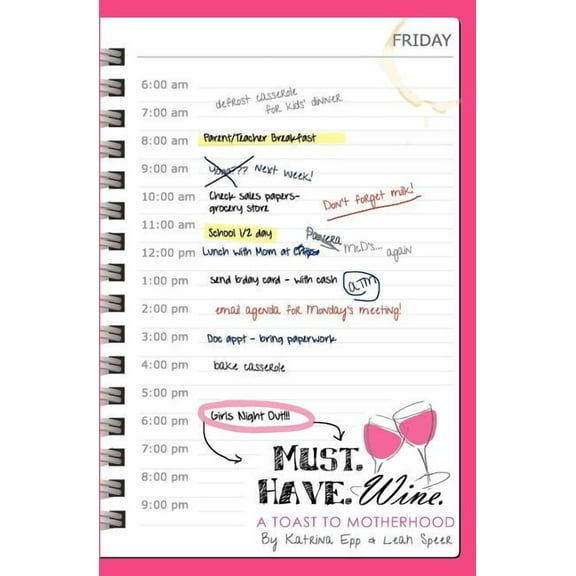 FRIDAY
6:00 am
defrost casserole
for kids' dinner
7:00 am
8:00 am Parent/Teacher Breakfast
9:00 am Yoga??? Next week!
10:00 am Check sales papers-
grocery store
Don't forget milk!
11:00 am School 1/2 day
Panera
McD's... again
12:00 pm Lunch with Mom at
1:00 pm send b'day card - with cash ATM
2:00 pm email agenda for Monday's meeting!
3:00 pm Doc appt - bring paperwork
4:00 pm bake casserole
5:00 pm
6:00 pm Girls Night Out!!!
7:00 pm
8:00 pm
9:00 pm
MUST.
HAVE. Wine.
A TOAST TO MOTHERHOOD
By Katrina Epp & Leah Speer